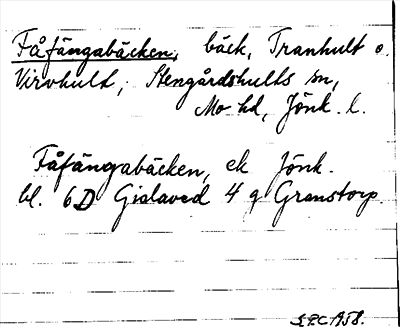 Fåfängabäcken, bäck, Tranhult o.
Virvhult, Stengårdshults sn,
Mo hd, Jönk. l.
Fåfängabäcken, ek Jönk.
bl. 6D Gislaved 4 g Granstorp
S.P.C. 1958.